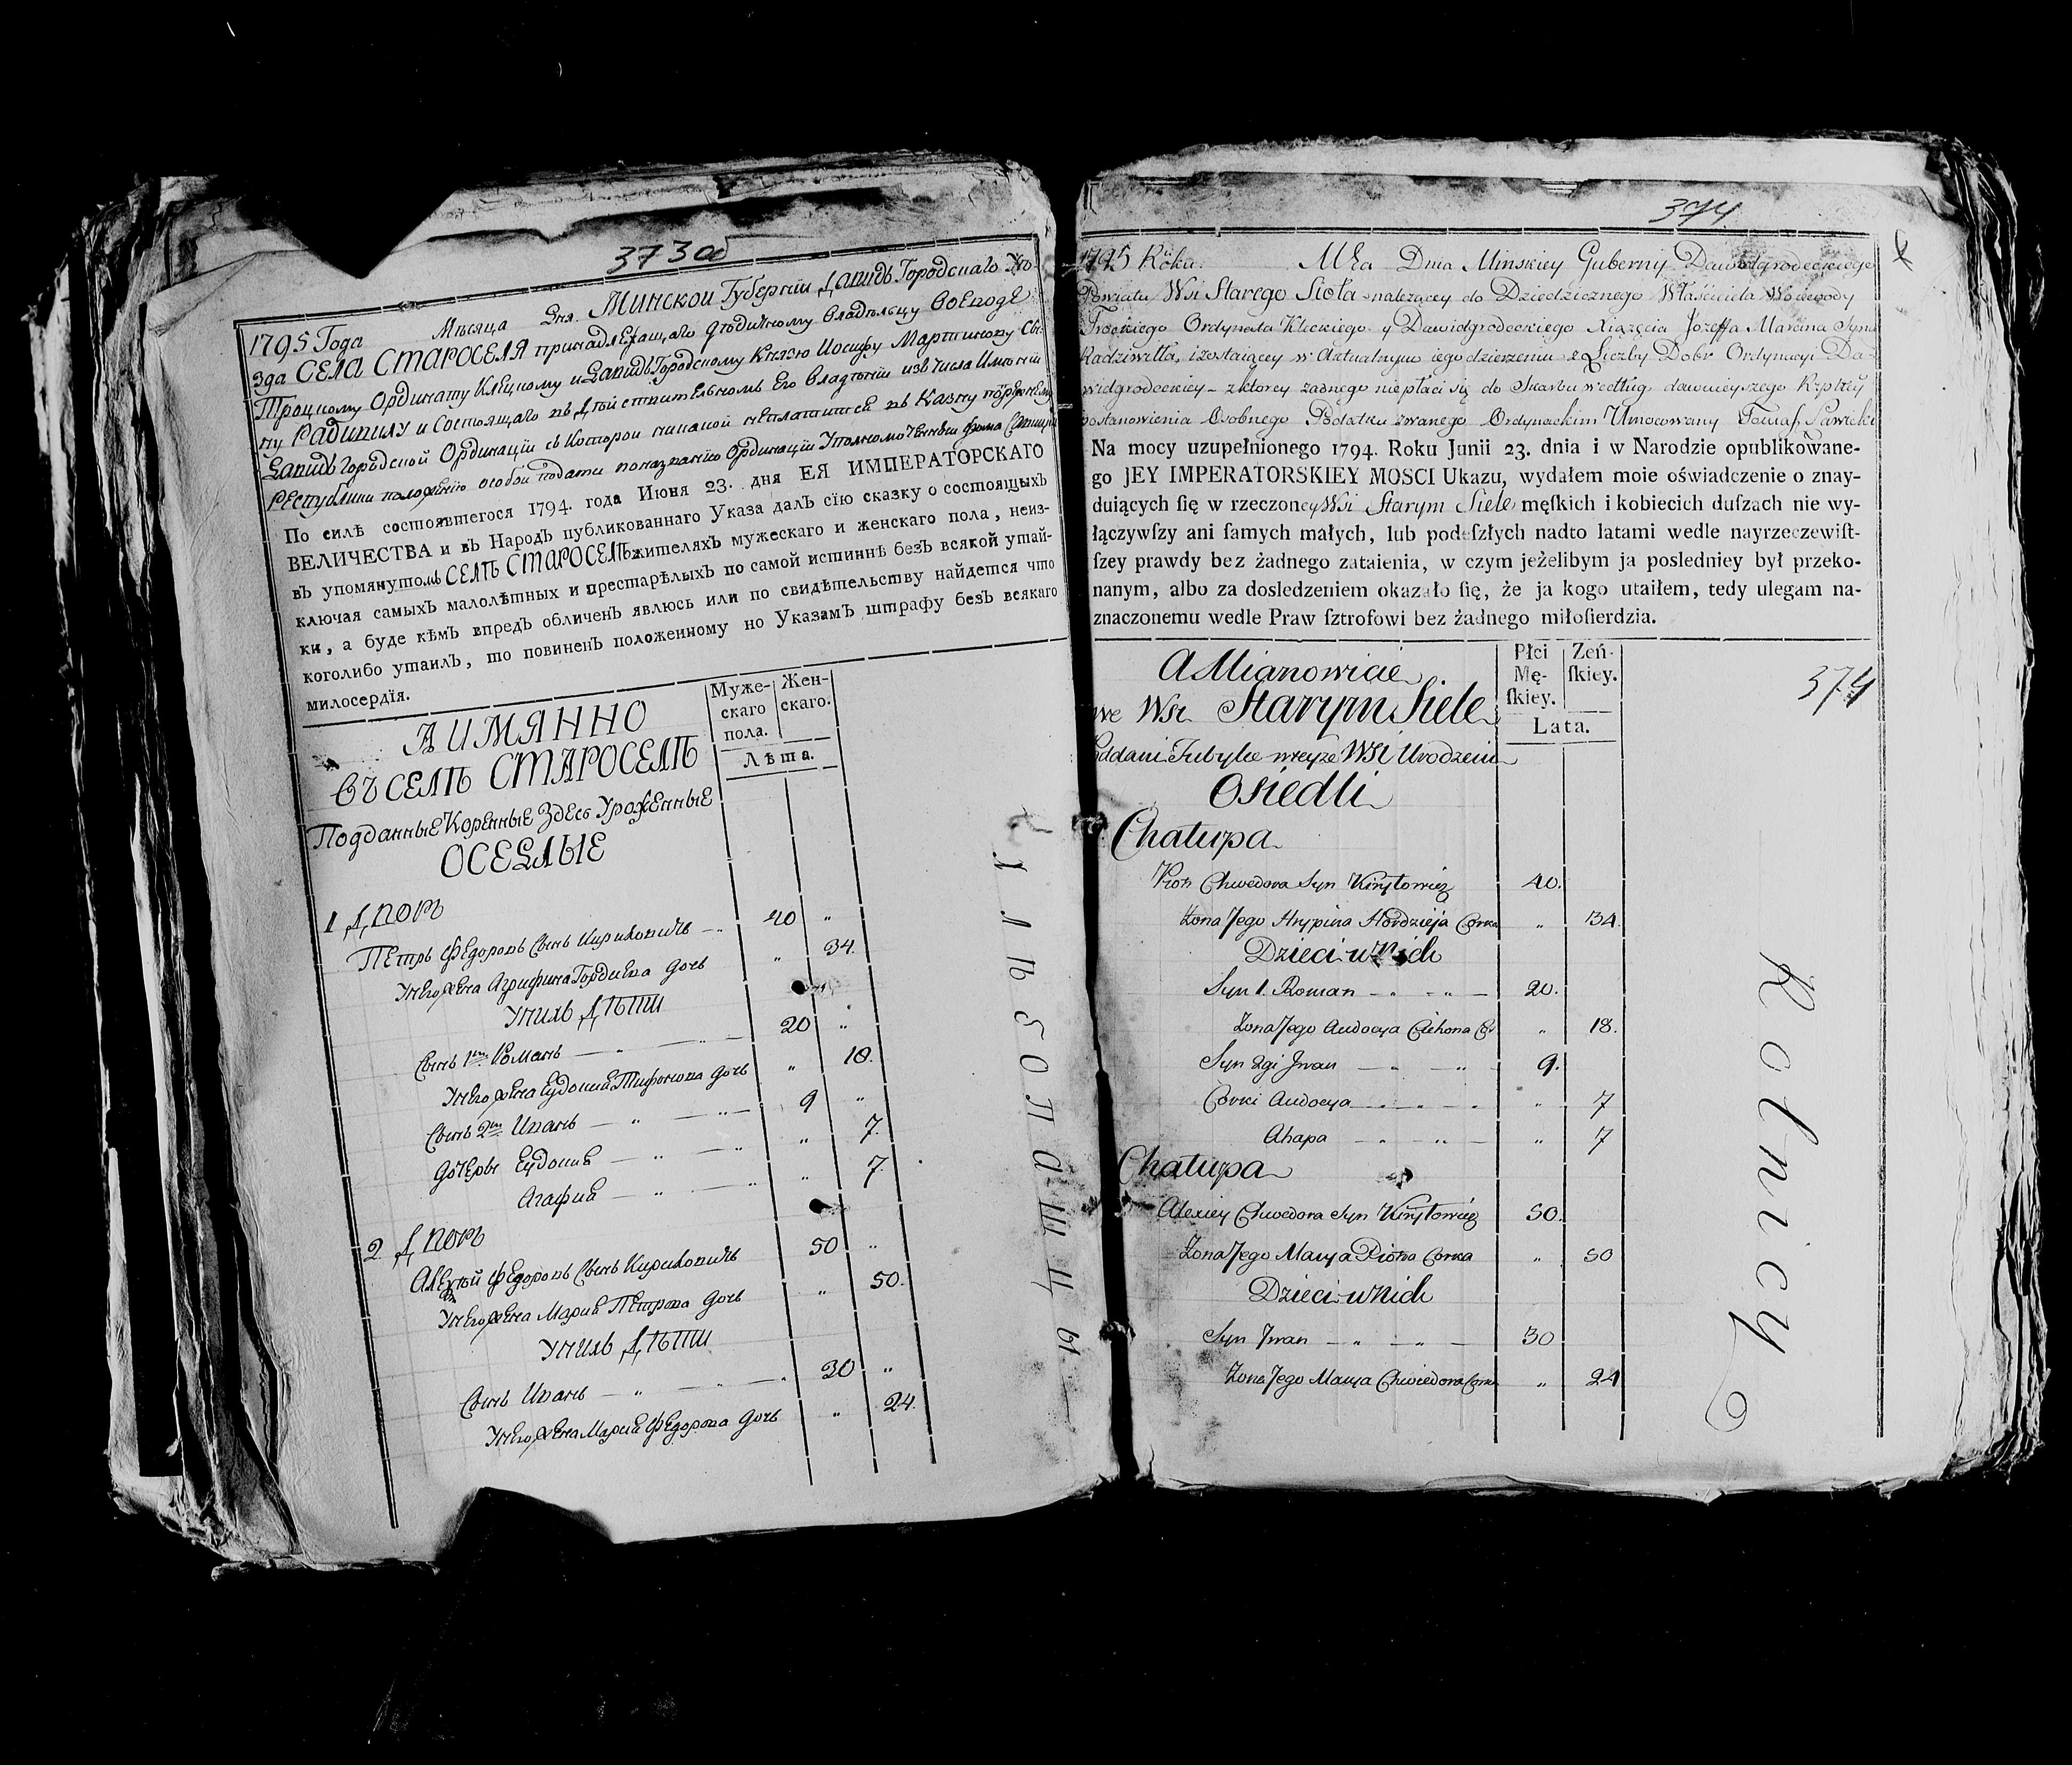 373 об
1795 Года Мѣсяца Дня Минской Губерніи Давидъ Городскаго Уѣ-
зда СЕЛА СТАРОСЕЛЯ принадлежащаго Дѣдичному Владѣльцу Воеводѣ
Троцкому Ординату Клецкому и Давидъ Городскому Князю Іосифу Мартинову Сы-
ну Радивилу и состоящаго въ Дѣйствительномъ Его Владѣніи изъ числа Имѣній
Давидъ Городской Ординаціи съ которой никакой неплатится въ Казну
Республики положенію особой подати названію Ординаціи Уполномоченный Фома
По силѣ состоявшегося 1794. года Июня 23. дня ЕЯ ИМПЕРАТОРСКАГО
ВЕЛИЧЕСТВА и въ НародЪ публикованнаго Указа далЪ сїю сказку о состоящыхЪ
въ упомянутомъ СЕЛѢ СТАРОСЕЛѢ жителяхЪ мужескаго и женскаго пола, неиз-
ключая самыхЪ малолѣтныхЪ и престарѣлыхЪ по самой истиннѣ безЪ всякой утай-
ки, а буде кѣмЪ впредЪ обличенЪ явлюсь или по свидѣтельству найдется что
коголибо утаилЪ, то повиненЪ положенному по УказамЪ штрафу безЪ всякаго
милосердїя.
А ИМЯННО
ВЪ СЕЛѢ СТАРОСЕЛѢ
Подданные Коренные Здесь Урожѣнные
ОСЕДЛЫЕ
Муже-скаго пола. Жен-скаго.
Лѣта.
1 Дворъ
Петръ Федоровъ Сынъ Кириловичъ 40 "
У него жена Агрифина Гордиева дочь " 34.
У нихъ Дѣти
Сынъ 1й Романъ 20 "
У него жена Евдокия Тифонова дочь " 18.
Сынъ 2й Иванъ 9 "
дочери Евдокия " 7.
Агафия " 7.
2 Дворъ
Алексѣй Федоровъ Сынъ Кириловичъ 50 "
У него жена Мария Петрова дочь " 50.
У нихъ Дѣти
Сынъ Иванъ 30 "
У него жена Мария Федорова дочь " 24.
374.
1795 Roku. Mca Dnia Minskiey Guberny Dawidgrodeckiego
Powiatu Wsi Starego Sioła należącey do Dziedzicznego Właściciela Woiewody
Trockiego Ordynata Kleckiego y Dawidgrodeckiego Xiążęcia Jozeffa Marcina Syna
Radziwiłła, i zostaiącey w Aktualnym iego dzierzeniu z Liczby Dobr Ordynacyi Da-
widgrodeckiey z ktorey żadnego niepłaci się do Skarbu według dawnieyszego Rzpltey
postanowienia Osobnego Podatku zwanego Ordynackim Umocowany Tomasz Sawicki
Na mocy uzupełnionego 1794. Roku Junii 23. dnia i w Narodzie opublikowane-
go JEY IMPERATORSKIEY MOSCI Ukazu, wydałem moie oświadczenie o znay-
duiących ſię w rzeczoney Wsi Starym Siele męſkich i kobiecich duſzach nie wy-
łączywſzy ani ſamych małych, lub podeſzłych nadto latami wedle nayrzeczewiſt-
ſzey prawdy bez żadnego zataienia, w czym jeżelibym ja posledniey był przeko-
nanym, albo za dosledzeniem okazało ſię, że ja kogo utaiłem, tedy ulegam na-
znaczonemu wedle Praw ſztrofowi bez żadnego miłoſierdzia.
A Mianowicie
we Wsi Starym Siele
Poddani Tubylce w teyże Wsi Urodzeni
Osiedli
Płci Mę-ſkiey. Zeń-ſkiey.
Lata.
374
Chałupa
Piotr Chwedora Syn Kiryłowicz 40.
Zona Jego Hrypina Hordzieja Corka " 34.
Dzieci w Nich
Syn 1. Roman 20.
Zona Jego Audocya Cichona Cor " 18.
Syn 2gi Jwan 9.
Corki Audocya " 7
Ahapa " 7
Chałupa
Alexiey Chwedora Syn Kiryłowicz 50.
Zona Jego Marya Piotra Corka " 50
Dzieci w Nich
Syn Jwan 30
Zona Jego Marya Chwiedora Corka " 24
Rolnicy